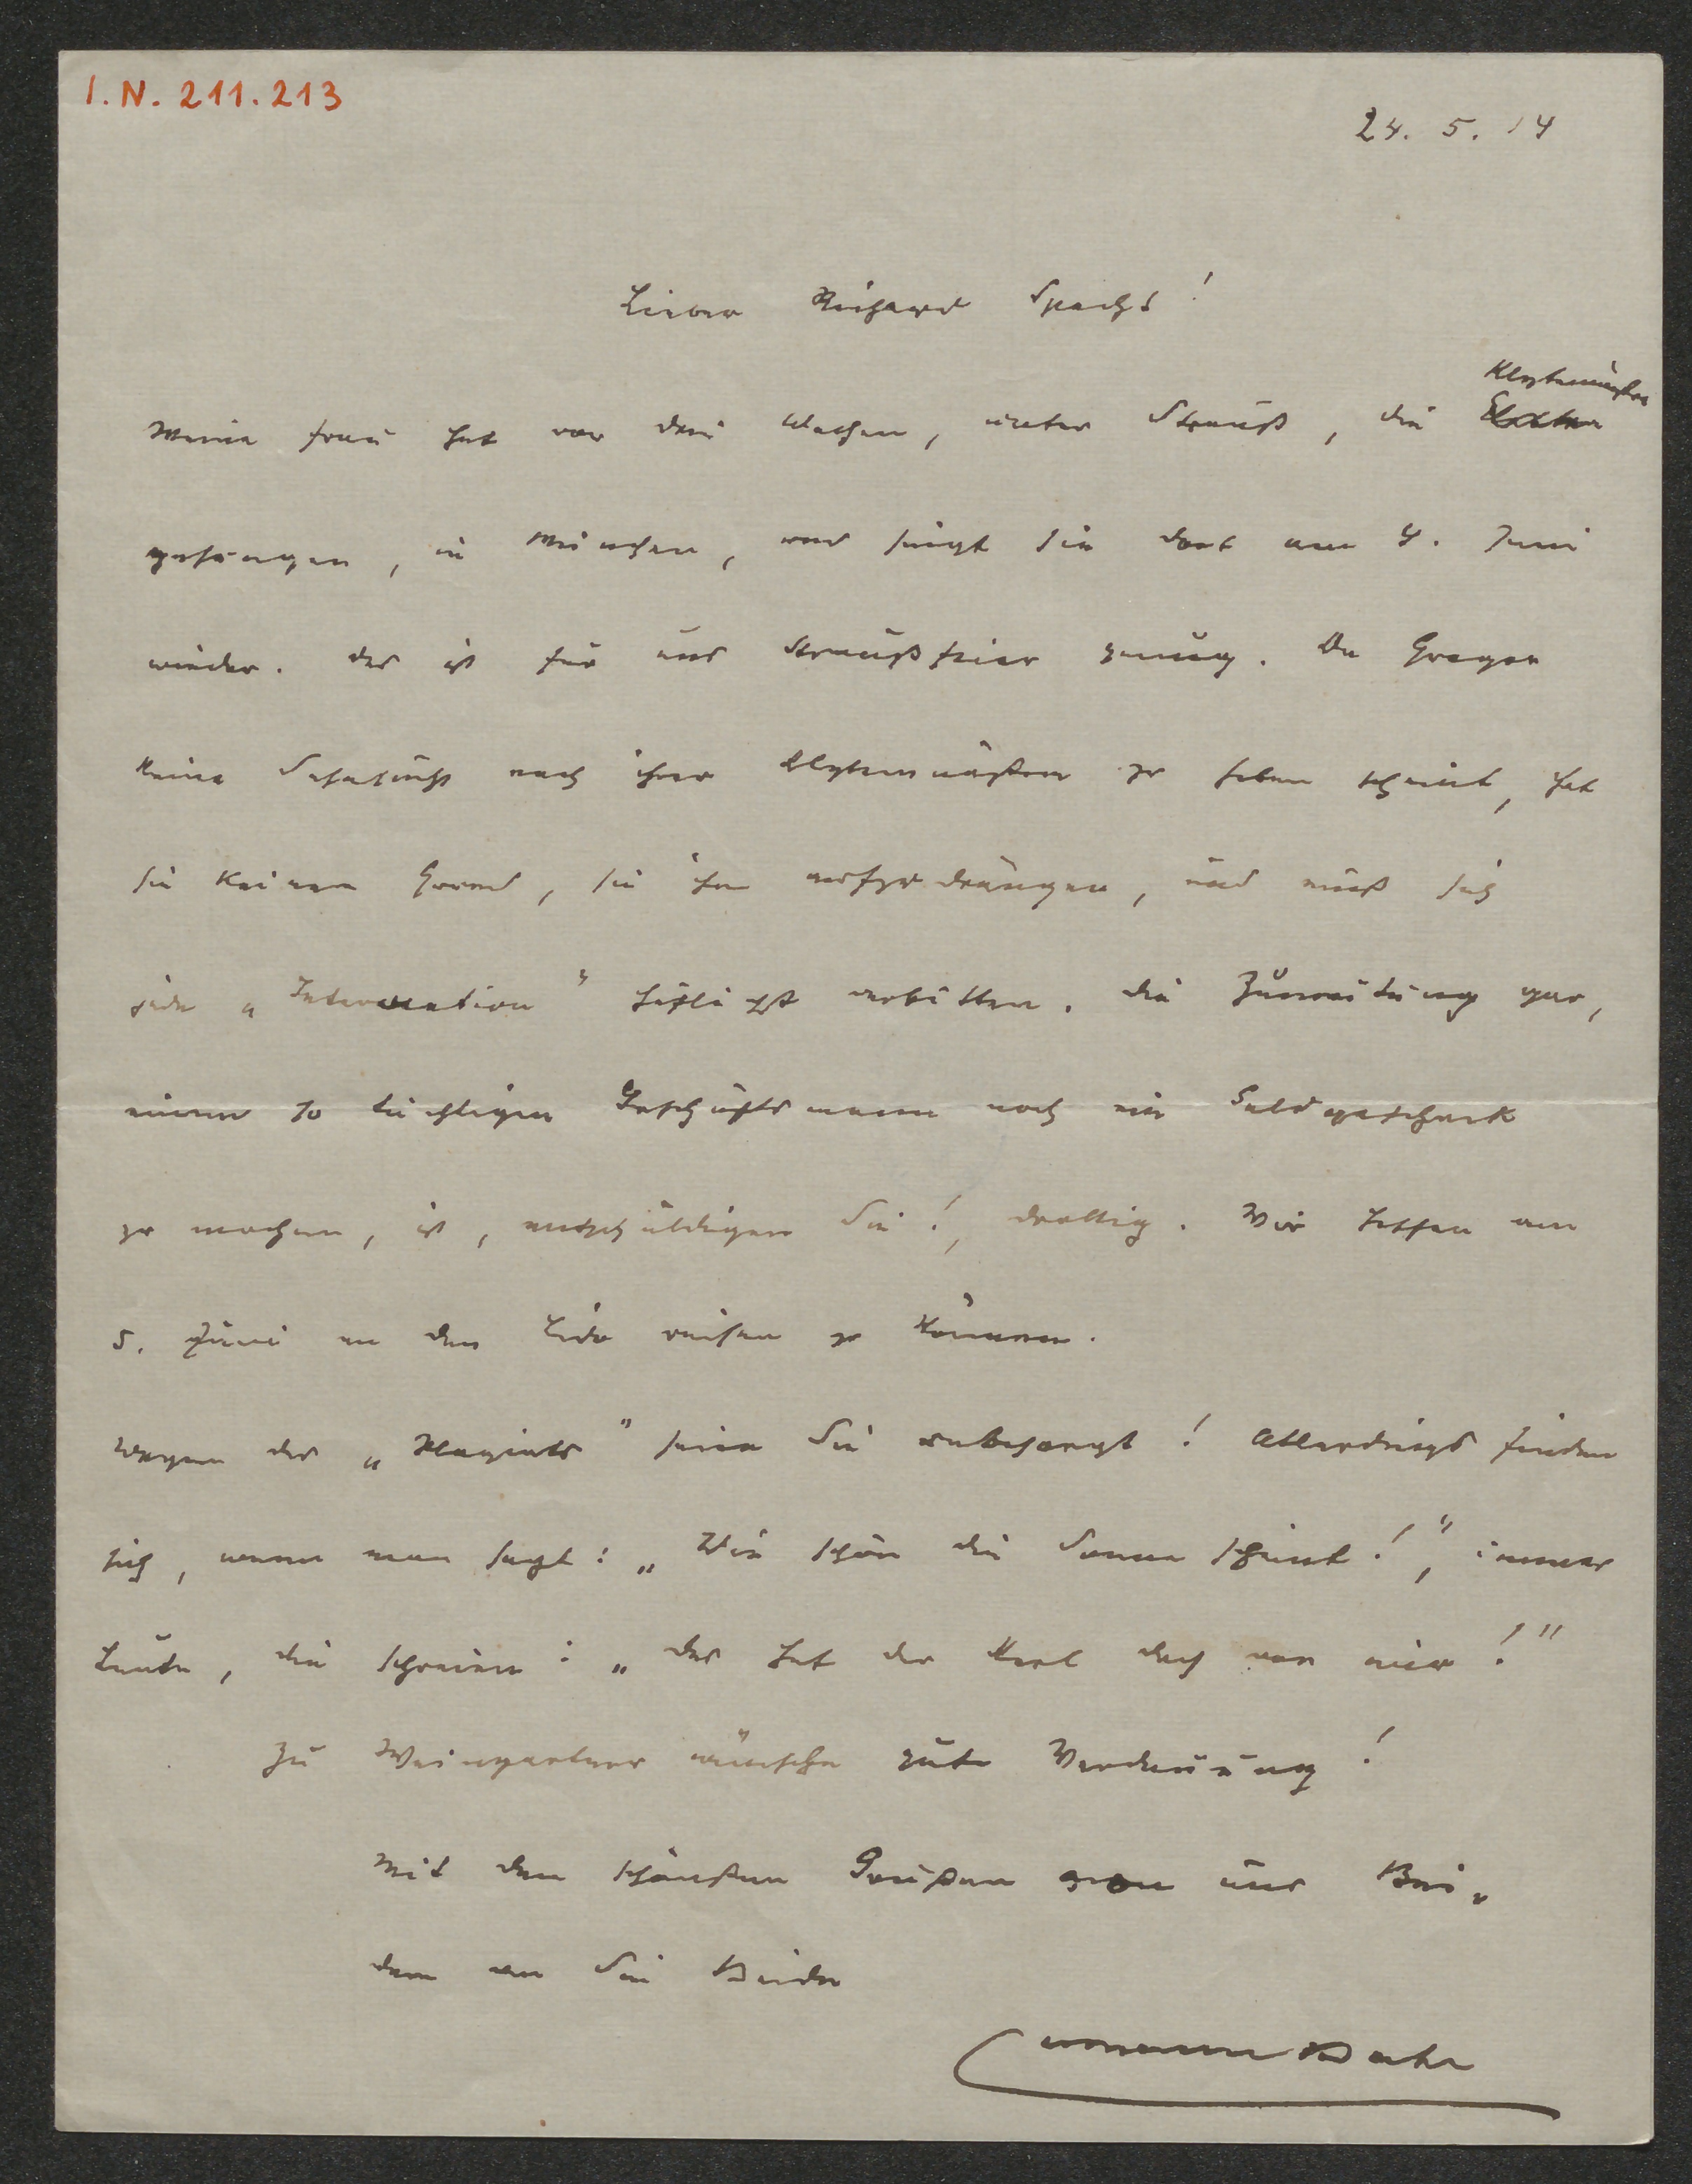 I.N. 211.213
24. 5. 14
Lieber Richard Specht!
Klytemnästra
Meine Frau hat vor drei Wochen, unter Strauß, die Elektra
gesungen, in München, und singt sie dort am 4. Juni
wieder. Das ist für uns Straußfeier genug. Da Gregor
keine Sehnsucht nach ihrer Klytemnästra zu haben scheint, hat
sie keinen Grund, sie ihm aufzudrängen, und muß sich
jede „Intervention" höflichst verbitten. Die Zumutung gar,
einem so tüchtigen Geschäftsmann noch ein Geldgeschenk
zu machen, ist, entschuldigen Sie!, drollig. Wir hoffen am
5. Juni an den Lido reisen zu können.
Wegen des „Plagiats" seien Sie unbesorgt! Allerdings finden
sich, wenn man sagt: „Wie schön die Sonne scheint!", immer
Leute, die schreien: „Das hat der Kerl doch von mir!"
Zu Weingartner wünsche gute Verdauung!
Mit den schönsten Grüßen von uns Bei„
den an Sie Beide
Hermann Bahr